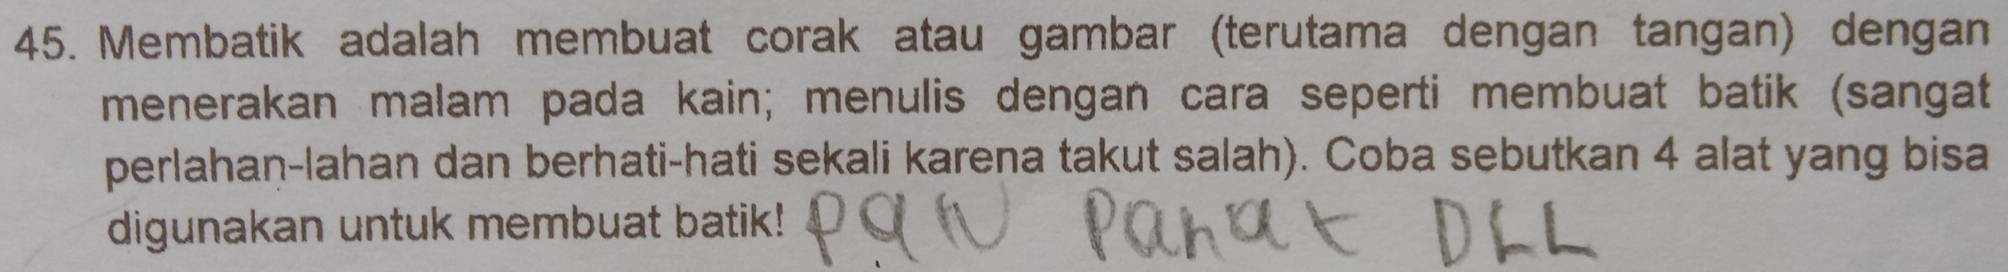 45. Membatik adalah membuat corak atau gambar (terutama dengan tangan) dengan
menerakan malam pada kain; menulis dengan cara seperti membuat batik (sangat
perlahan-lahan dan berhati-hati sekali karena takut salah). Coba sebutkan 4 alat yang bisa
digunakan untuk membuat batik! Panat DLL